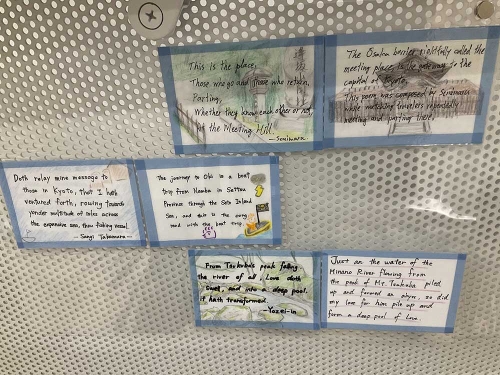 This is the place,
Those who go and those who return,
Parting,
Whether they know each other or not,
At the Meeting Hill
—Semimaru
The Osaka barrier rightfully called the
meeting place, is the gateway to the
capital of Kyoto.
This poem was composed by Semimaru
while watching travelers repeatedly
meeting and parting there.
Doth relay mine message to
those in Kyoto, that I hath
ventured forth, rowing towards
yonder multitude of isles across
the expansive sea, thou fishing vessel.
—Sangi Takamura—
The journey to Oki is a boat
trip from Namba in Settsu
Province through the Seto Inland
Sea, and this is the
road with the boat trip.
From Tsukuba's peak falling
the river of all, Love doth
swell, and into a deep pool,
it hath transformed.
—Yozei-in
Just as the water of the
Minano River flowing from
the peak of Mt. Tsukuba piled
up and formed an abyss, so did
my love for him pile up and
form a deep pool of love.